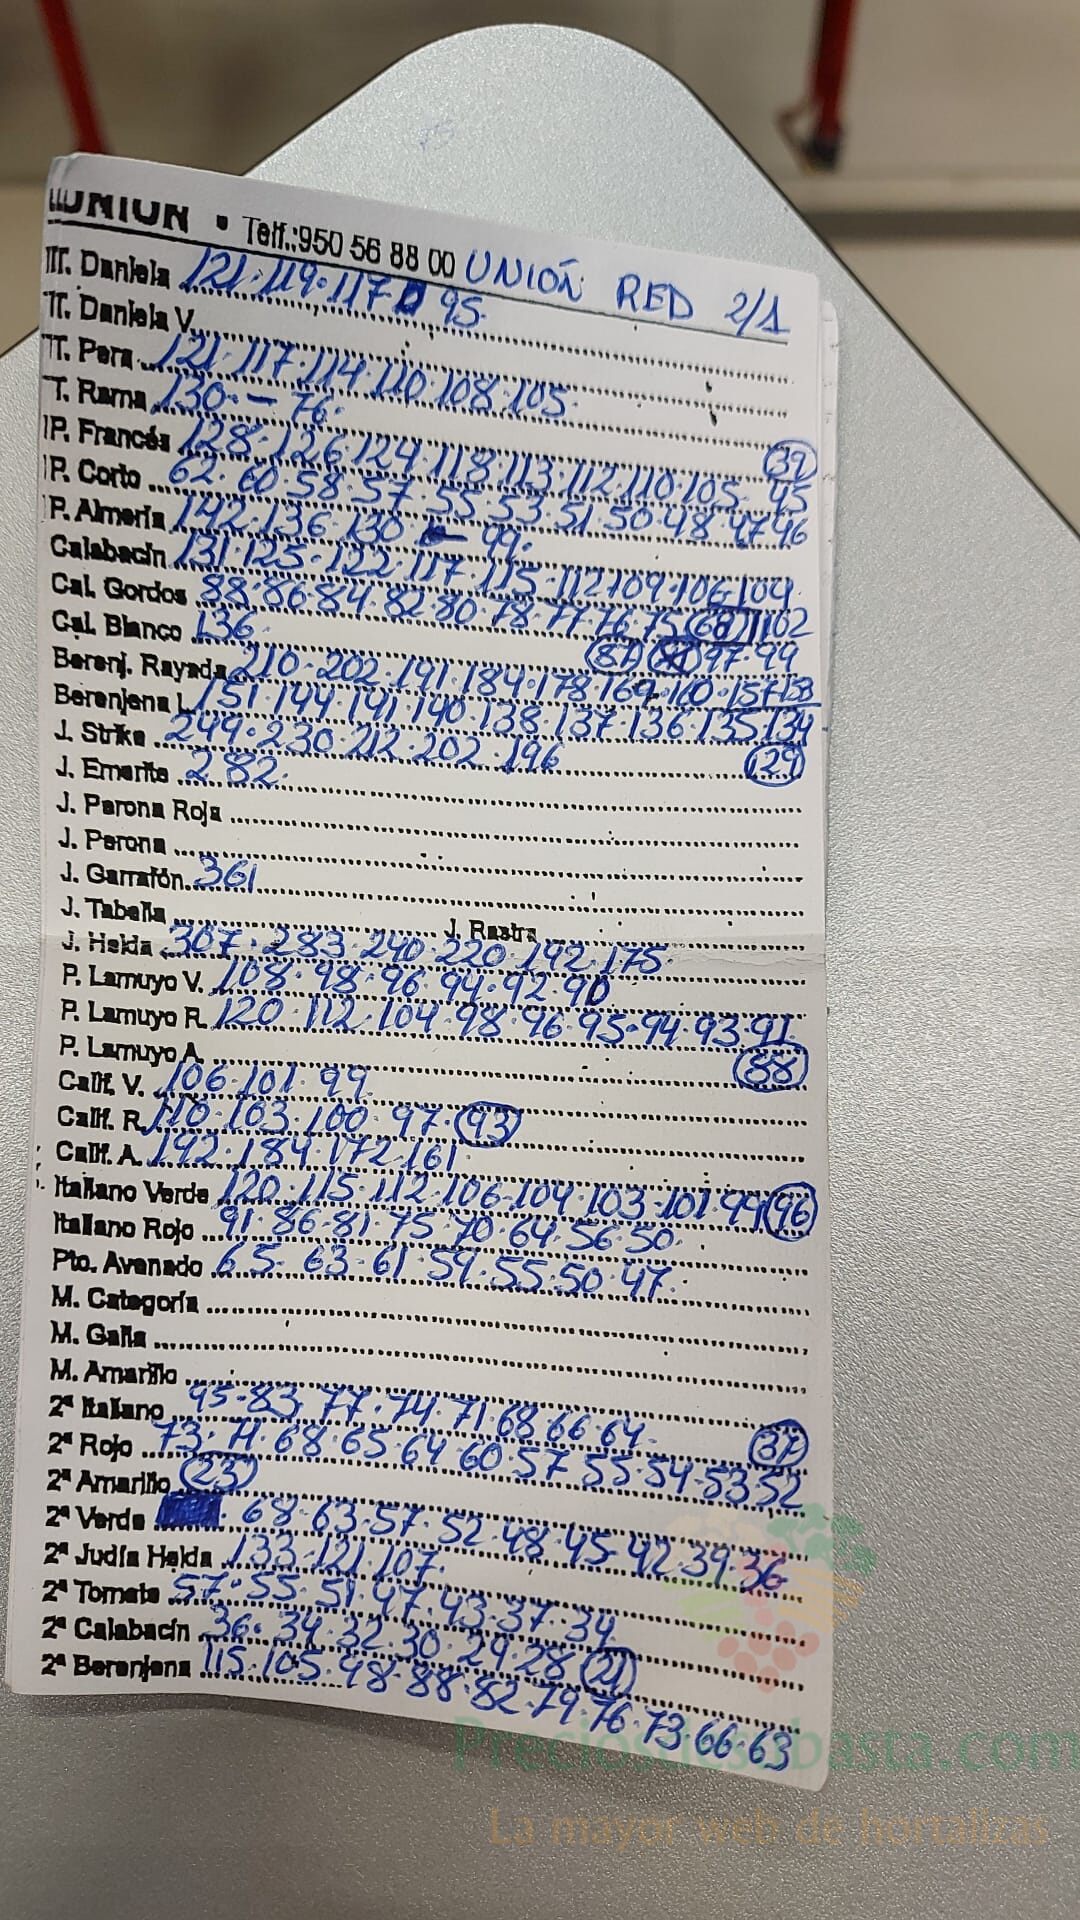 UNION • Telf.:950 56 88 00 UNIÓN RED 2/1
T. Daniela 121·119·117 95
T. Daniela V.
T. Pera 121·117·114·110·108·105
T. Rama 130·-76·
P. Francés 128·126·124·118·113·112·110·105· 95 (39)
P. Corto 62·60·58·57·55·53·51·50·48·47·46
P. Almería 142·136·130 - 99·
Calabacín 131·125·122·117·115·112·109·106·104 102
Cal. Gordos 88·86·84·82·80·78·77·76·75 (68)
Cal. Blanco 136· (87) 97·99
Berenj. Rayada 210·202·191·184·178·169·160·157·153
Berenjena L. 151·144·141·140·138·137·136·135·134 (129)
J. Strike 249·230·212·202·196
J. Emerite 282·
J. Perona Roja
J. Perona
J. Garrafón 361
J. Tabella J. Rastra
J. Helda 307·283·240·220·192·175·
P. Lamuyo V. 108·98·96·94·92·90
P. Lamuyo R. 120·112·104·98·96·95·94·93·91· (88)
P. Lamuyo A.
Calif. V. 106·101·99
Calif. R. 110·103·100·97·(93)
Calif. A. 192·184·172·161
Italiano Verde 120·115·112·106·104·103·101·99 (96)
Italiano Rojo 91·86·81·75·70·64·56·50·
Pto. Avenado 65·63·61·59·55·50·47·
M. Categoría
M. Galia
M. Amarillo
2ª Italiano 95·83·77·74·71·68·66·64· (37)
2ª Rojo 73·71·68·65·64·60·57·55·54·53·52
2ª Amarillo (23)
2ª Verde 68·63·57·52·48·45·42·39·36
2ª Judía Helda 133·121·107·
2ª Tomate 57·55·51·47·43·37·34
2ª Calabacín 36·34·32·30·29·28 (21)
2ª Berenjena 115·105·98·88·82·79·76·73·66·63
Preciosdesubasta.com
La mayor web de hortalizas